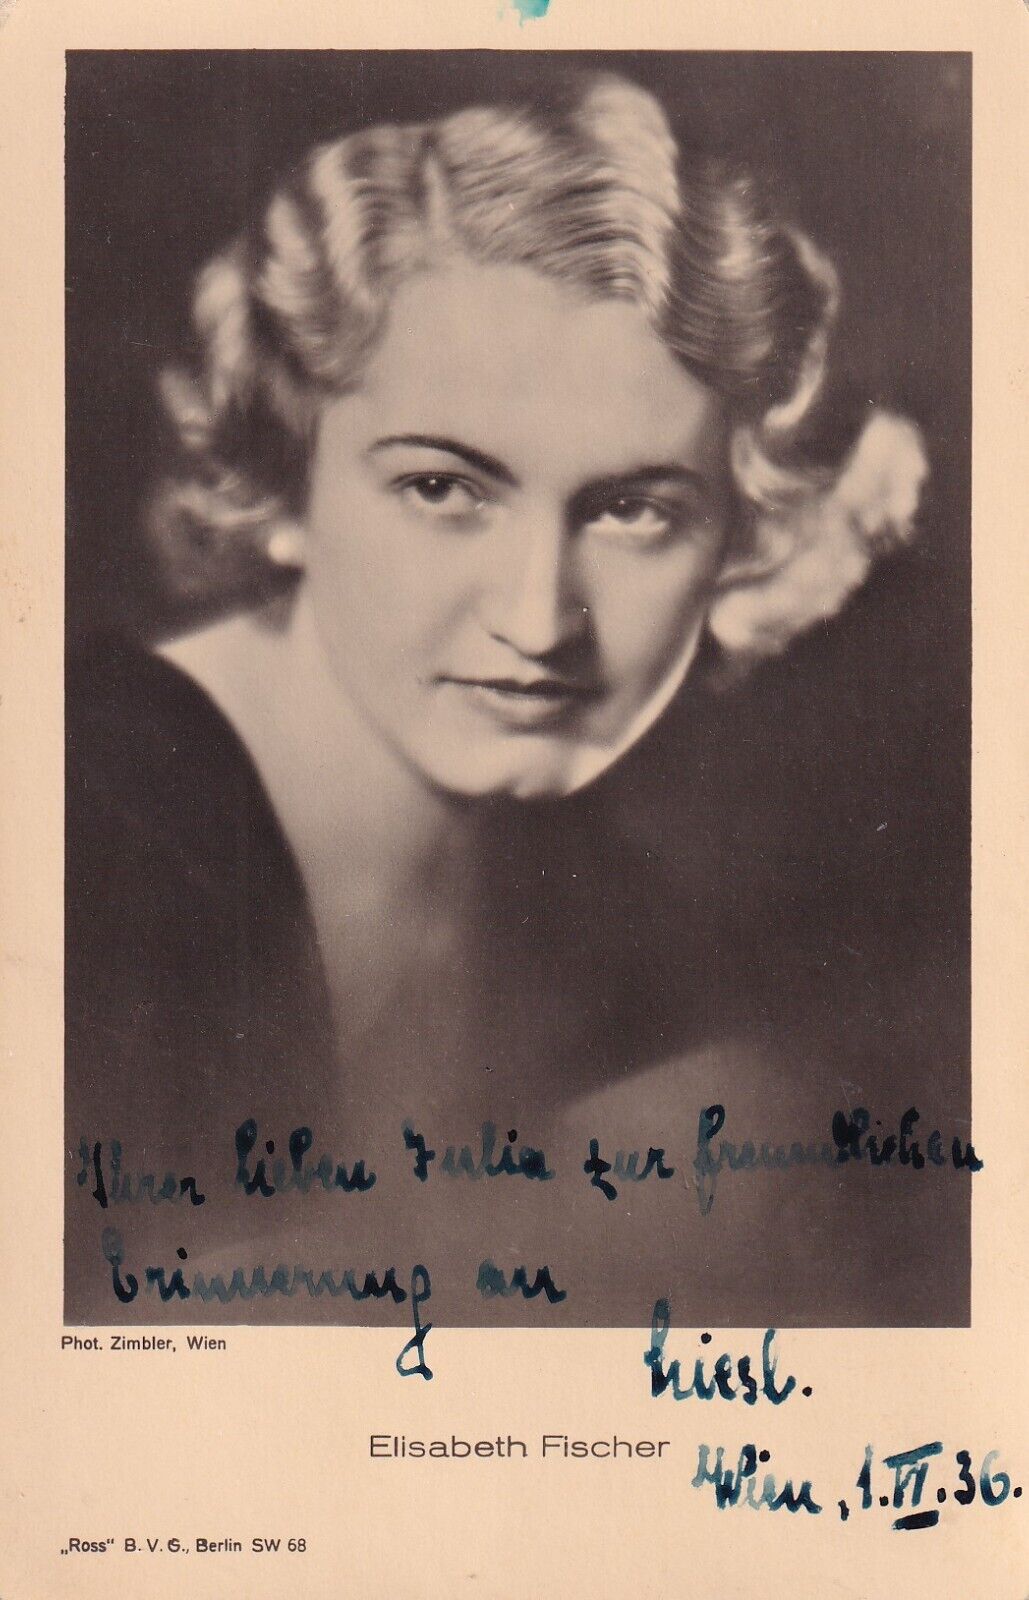 Ihrer lieben Julia zur freundlichen
Erinnerung an
Liesl.
Phot. Zimbler, Wien
Elisabeth Fischer
Wien, 1. VI. 36.
„Ross“ B. V. G., Berlin SW 68